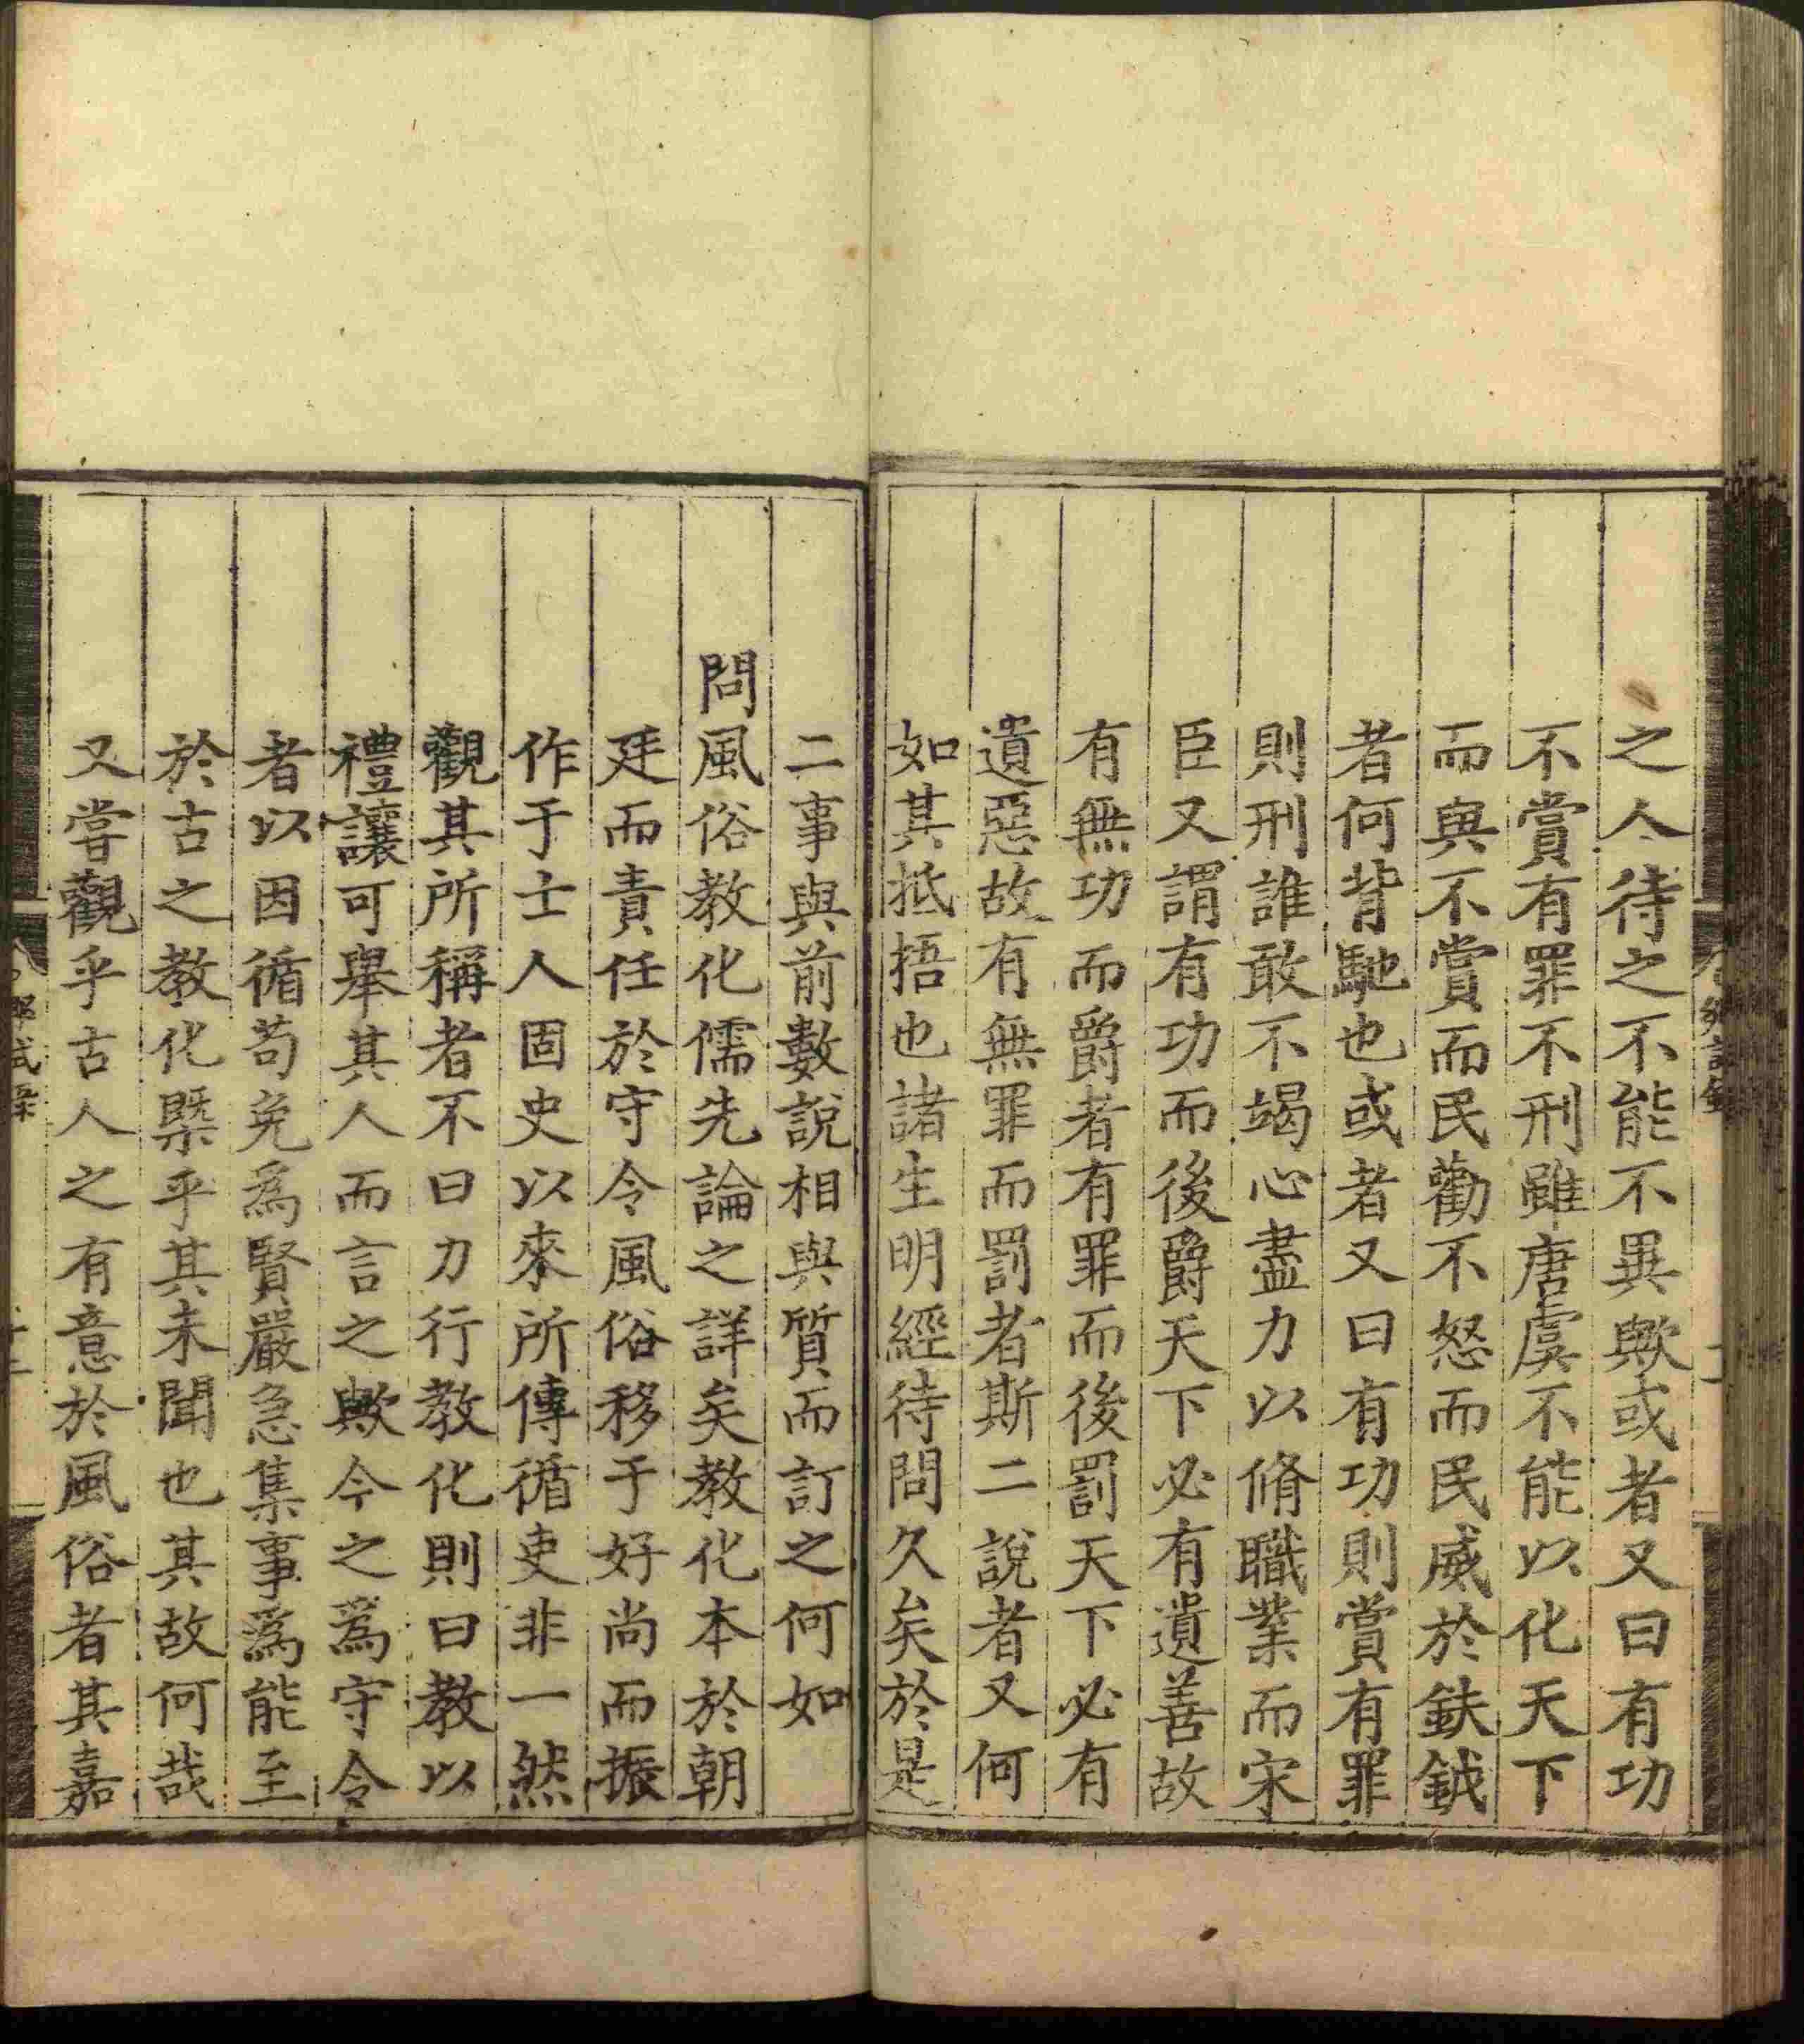 之人待之不能不異歟或者又曰有功
不賞有罪不刑雖唐虞不能以化天下
而與不賞而民勸不怒而民威於鈇鉞
者何背馳也或者又曰有功則賞有罪
則刑誰敢不竭心盡力以脩職業而宋
臣又謂有功而後爵天下必有遺善故
有無功而爵者有罪而後罰天下必有
遺惡故有無罪而罰者斯二說者又何
如其抵捂也諸生明經待問久矣於是
二事與前數說相與質而訂之何如
問風俗教化儒先論之詳矣教化本於朝
廷而責任於守令風俗移于好尚而振
作于士人固史以來所傳循吏非一然
觀其所稱者不曰力行教化則曰教以
禮讓可舉其人而言之歟今之為守令
者以因循苟免為賢嚴急集事為能至
於古之教化槩乎其未聞也其故何哉
又嘗觀乎古人之有意於風俗者其嘉